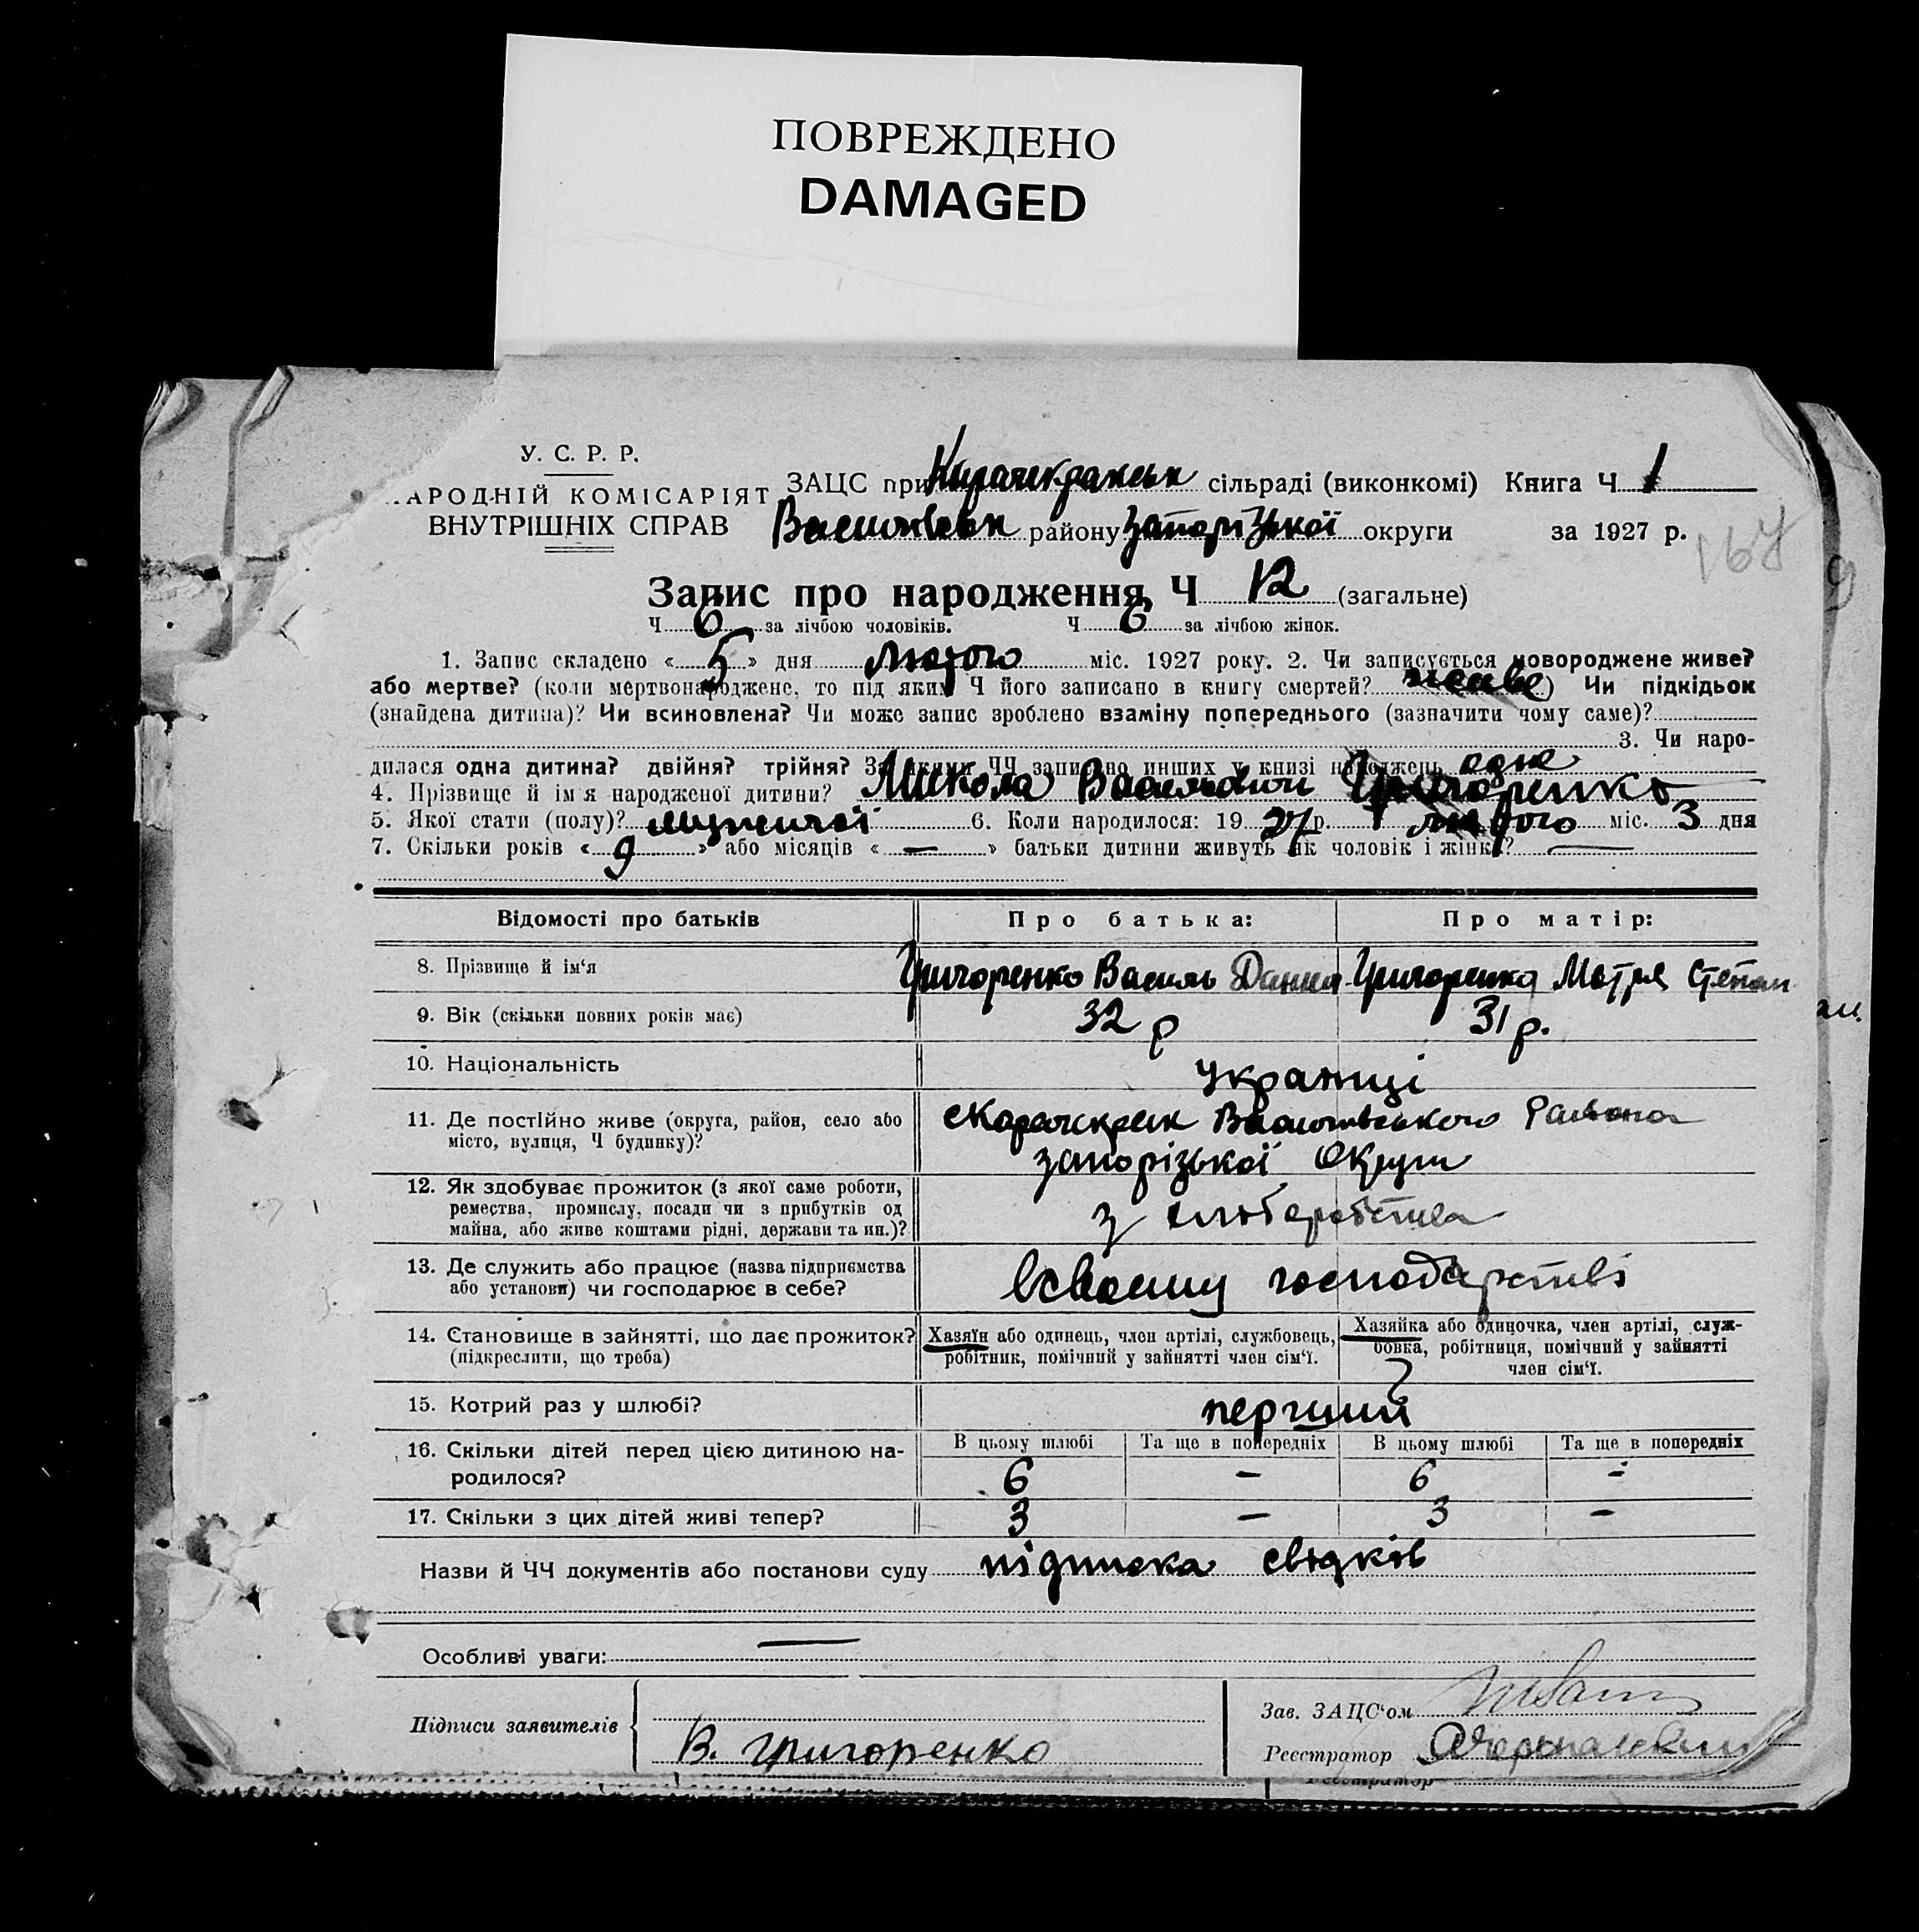 ПОВРЕЖДЕНО
DAMAGED
У. С. Р. Р.
АРОДНІЙ КОМІСАРІЯТ
ВНУТРІШНІХ СПРАВ
ЗАЦС при сільраді (виконкомі) Книга Ч 1
району Запорізької округи за 1927 р.
167
9
Запис про народження Ч 12 (загальне)
Ч 6 за лічбою чоловіків. Ч 6 за лічбою жінок.
1. Запис складено « 5 » дня лютого міс. 1927 року. 2. Чи записується новороджене живе?
або мертве? (коли мертвонароджене, то під яким Ч його записано в книгу смертей? живе) Чи підкідьок
(знайдена дитина)? Чи всиновлена? Чи може запис зроблено взаміну попереднього (зазначити чому саме)?
3. Чи наро-
дилася одна дитина? двійня? трійня? За якими ЧЧ записано инших у книзі народжень одне
4. Прізвище й ім'я народженої дитини? Микола Васильович Григоренко
5. Якої стати (полу)? мужичої 6. Коли народилося: 19 27 р. лютого міс. 3 дня
7. Скільки років « 9 » або місяців « — » батьки дитини живуть як чоловік і жінка? —
Відомості про батьків
Про батька:
Про матір:
8. Прізвище й ім'я
Григоренко Василь Данил
Григоренко Мотря Степан
9. Вік (скільки повних років має)
32 р
31 р.
10. Національність
українці
11. Де постійно живе (округа, район, село або
місто, вулиця, Ч будинку)?
Василівського района
запорізької Округи
12. Як здобуває прожиток (з якої саме роботи,
ремества, промислу, посади чи з прибутків од
майна, або живе коштами рідні, держави та ин.)?
з хліборобства
13. Де служить або працює (назва підприємства
або установи) чи господарює в себе?
всвоєму господарстві
14. Становище в зайнятті, що дає прожиток?
(підкреслити, що треба)
Хазяїн або одинець, член артілі, службовець,
робітник, помічний у зайнятті член сім'ї.
Хазяйка або одиночка, член артілі, служ-
бовка, робітниця, помічний у зайнятті
член сім'ї.
15. Котрий раз у шлюбі?
перший
16. Скільки дітей перед цією дитиною на-
родилося?
В цьому шлюбі Та ще в попередніх В цьому шлюбі Та ще в попередніх
6 — 6 —
17. Скільки з цих дітей живі тепер?
3 — 3 —
Назви й ЧЧ документів або постанови суду підписка свідків
Особливі уваги: —
Підписи заявителів
В. Григоренко
Зав. ЗАЦС'ом
Реєстратор
Реєстратор